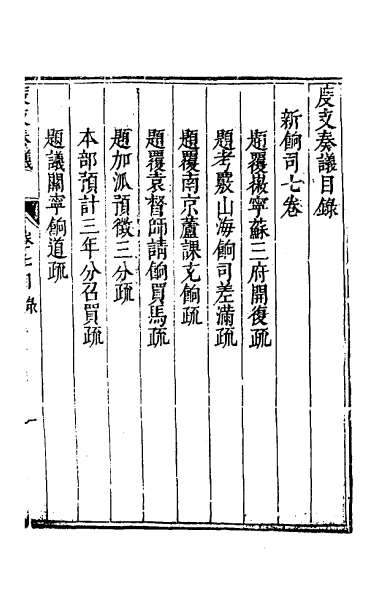 度支奏議目錄
新餉司七卷
題覆徽寧蘇三府開復疏
題考覈山海餉司差滿疏
題覆南京蘆課充餉疏
題覆袁督師請餉買馬疏
題加派預徵三分疏
本部預計三年分召買疏
題議關寧餉道疏
度支奏議
卷七目錄
一